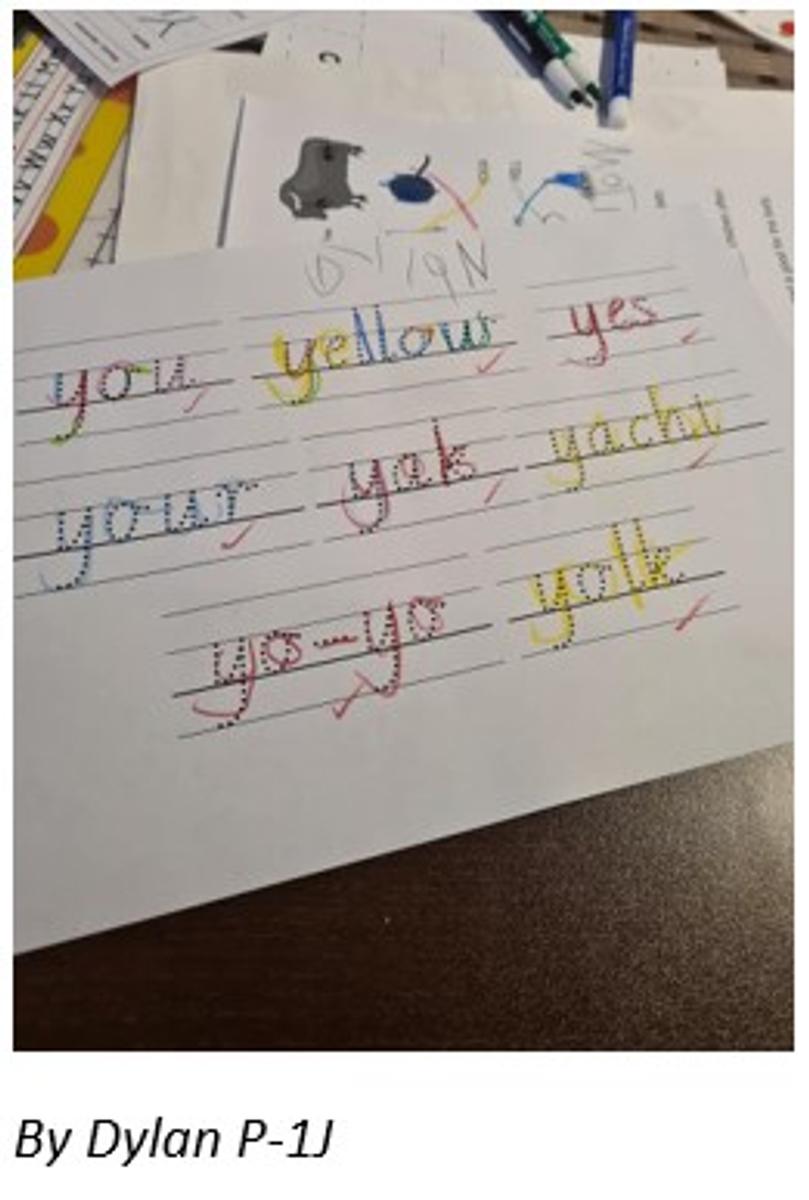 you yellow yes
your yak yacht
yo-yo yolk
By Dylan P-1J